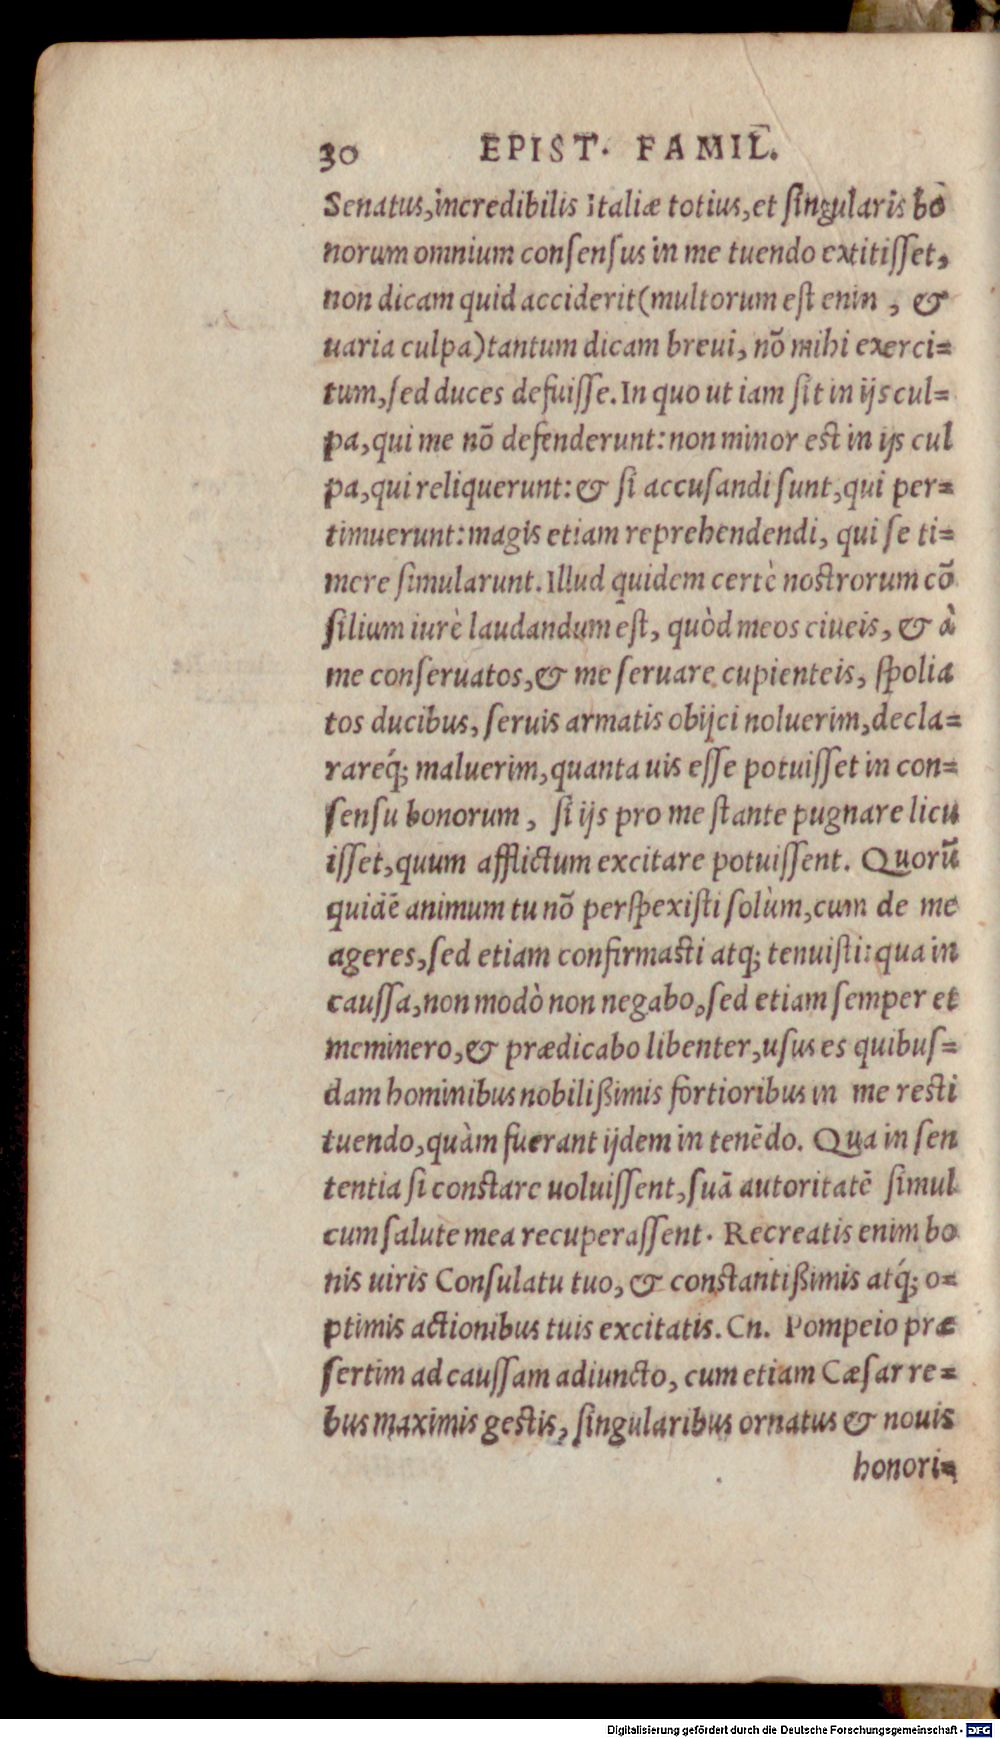 30 EPIST. FAMIL.
Senatus, incredibilis Italiæ totius, et singularis bo
norum omnium consensus in me tuendo extitisset,
non dicam quid acciderit (multorum est enin , &
uaria culpa) tantum dicam breui, nō mihi exerci=
tum, sed duces defuisse. In quo ut iam sit in ijs cul=
pa, qui me nō defenderunt: non minor est in ijs cul
pa, qui reliquerunt: & si accusandi sunt, qui per=
timuerunt: magis etiam reprehendendi, qui se ti=
mere simularunt. Illud quidem certè nostrorum cō
silium iurè laudandum est, quòd meos ciueis, & à
me conseruatos, & me seruare cupienteis, spolia
tos ducibus, seruis armatis obijci noluerim, decla=
rareq́; maluerim, quanta uis esse potuisset in con=
sensu bonorum, si ijs pro me stante pugnare licu
isset, quum afflictum excitare potuissent. Quorū
quidē animum tu nō perspexisti solùm, cum de me
ageres, sed etiam confirmasti atq; tenuisti: qua in
caussa, non modò non negabo, sed etiam semper et
meminero, & prædicabo libenter, usus es quibus=
dam hominibus nobilißimis fortioribus in me resti
tuendo, quàm fuerant ijdem in tenēdo. Qua in sen
tentia si constare uoluissent, suā autoritatē simul
cum salute mea recuperassent. Recreatis enim bo
nis uiris Consulatu tuo, & constantißimis atq́; o=
ptimis actionibus tuis excitatis. Cn. Pompeio præ
sertim ad caussam adiuncto, cum etiam Cæsar re=
bus maximis gestis, singularibus ornatus & nouis
honori=
Digitalisierung gefördert durch die Deutsche Forschungsgemeinschaft - DFG